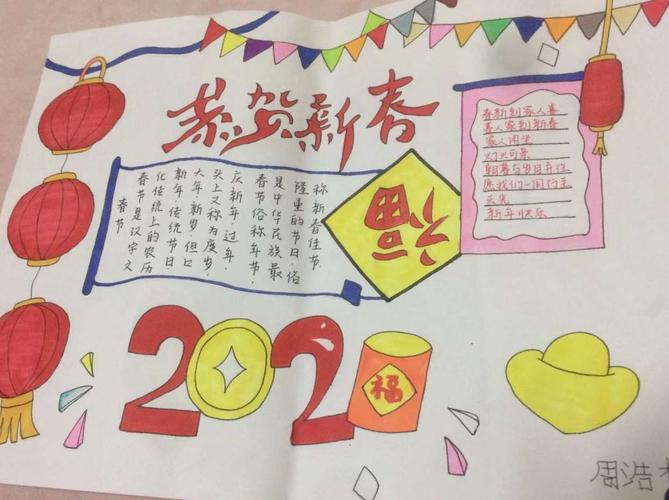 恭贺新春
春节
春节是汉字文
化传统上的农历
新年,传统节日
大年、新岁,但口
头上又称为度岁、
庆新年、过年
春节俗称年节,
是中华民族最
隆重的节日。俗
称新春佳节.
福
春新到家人喜
喜人家到新春
家人闲坐
灯火可亲
朝暮与岁月并往
愿我们一同行至
天光
新年快乐
202
福
周浩